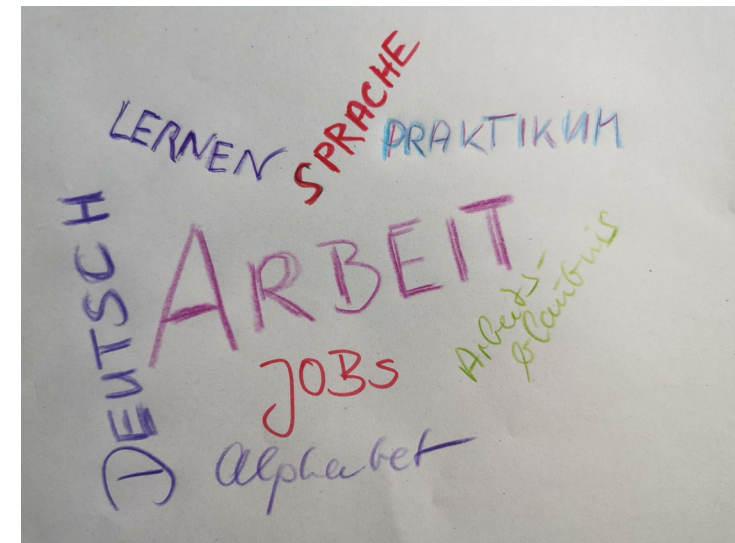 LERNEN
SPRACHE
PRAKTIKUM
DEUTSCH
ARBEIT
Arbeits-
erlaubnis
JOBS
Alphabet